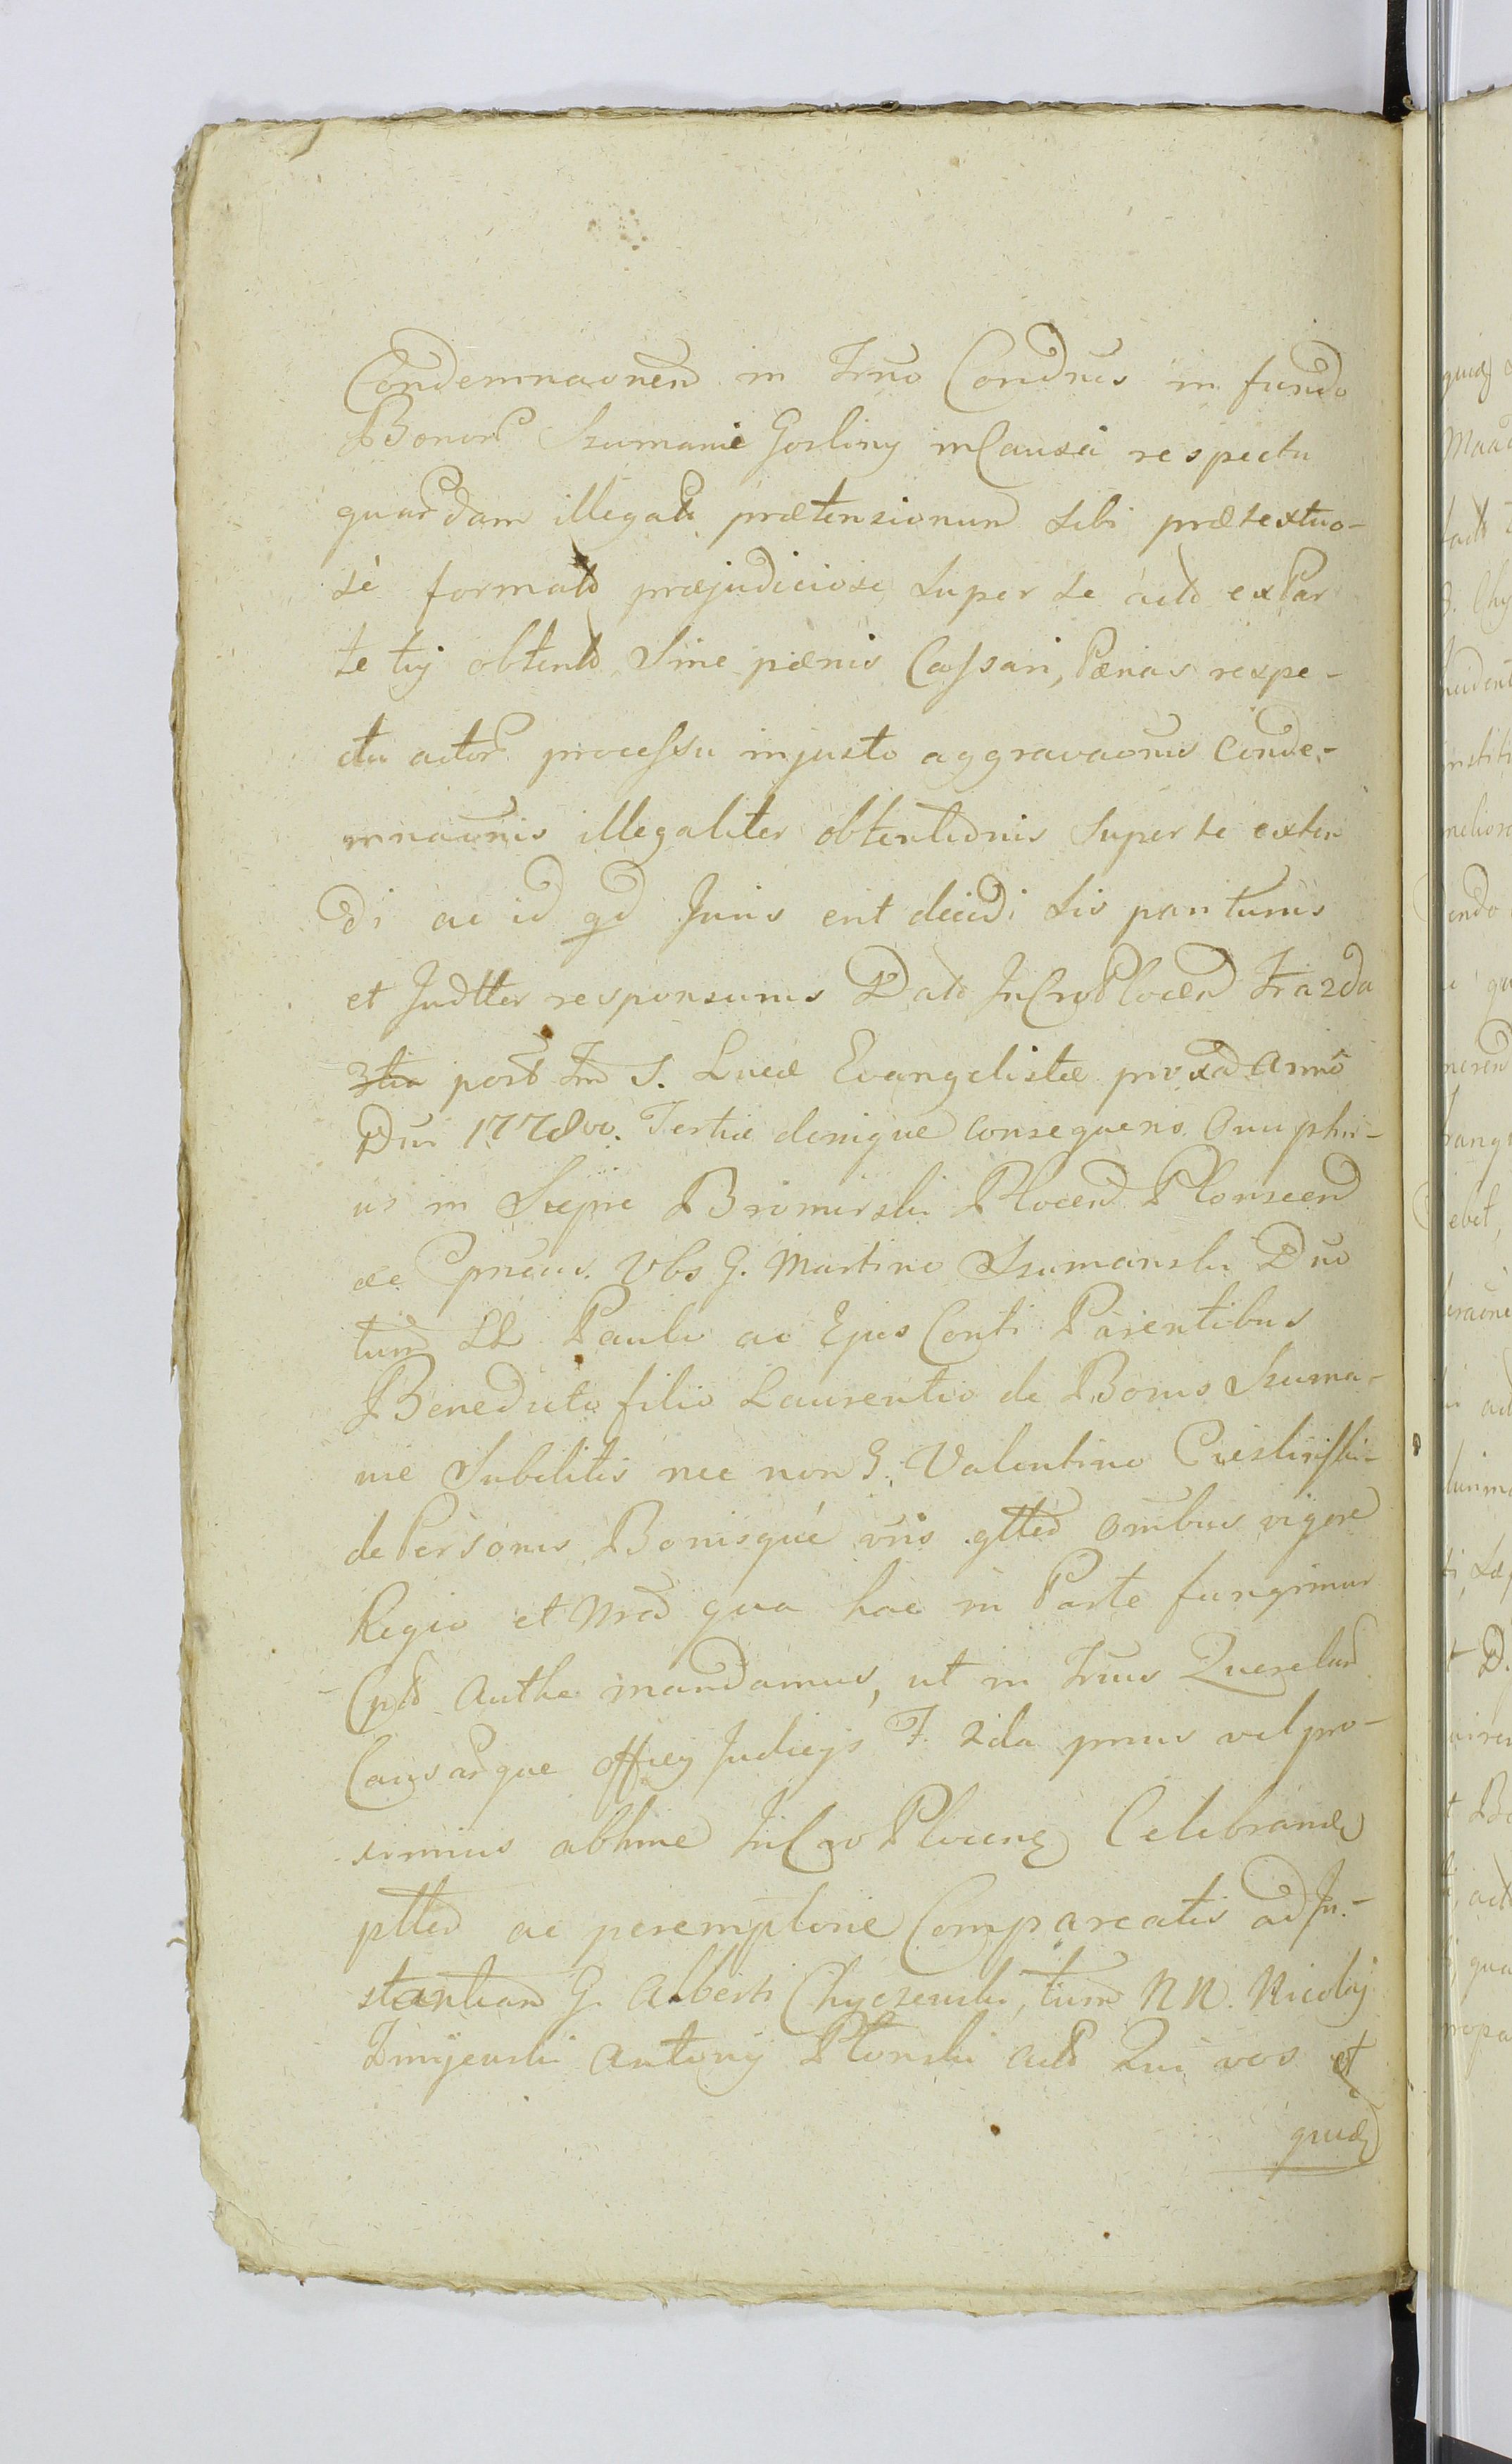 Condemnaonem in Trno Condnis in fundo
Bonor Szumanie Gosliny in Causa respectu
quardam illegali prætensionum sibi prætextuo-
sè format præjudiciose super se act ex Par
te tij obtent Sine pænis Cassari, Pænas respe-
ctu actor processu injusto aggravaonis Conde-
mnaonis illegaliter obtentionis super te exten
di ac id qd Juris erit decidi sis pariturus
et Judtter responsurus Dat In Cro Plocen Fra 2da
post Fm S. Lucæ Evangelistæ prox Anno
Dni 1778vo. Tertiæ denique consequens. Onuphri-
us in Siepie Bromirski Plocen Plonscen
&c pncus. Vbs G. Martino Szumanski Duo
tum LL Paulo ac Ejus Conti Parentibus
Benedicto filio Laurentio de Bonis Szuma-
nie Subditis nec non G. Valentino Cieslinski
de Personis Bonisque vris gtter omibus vigore
Regio et Nra qua hac in Parte fungimur
Cptl Authe mandamus, ut in Trnis Querelar
Causarque Officij Judicijs F. 2da primus vel pro-
ximius abhinc In Cro Plocen Celebrand
ptter ac peremptorie Compareatis ad In-
stantiam G. Alberti Chyczewski, tum NN. Nicolaj
Zmijewski Antonij Plonski act Qui vos et
quid